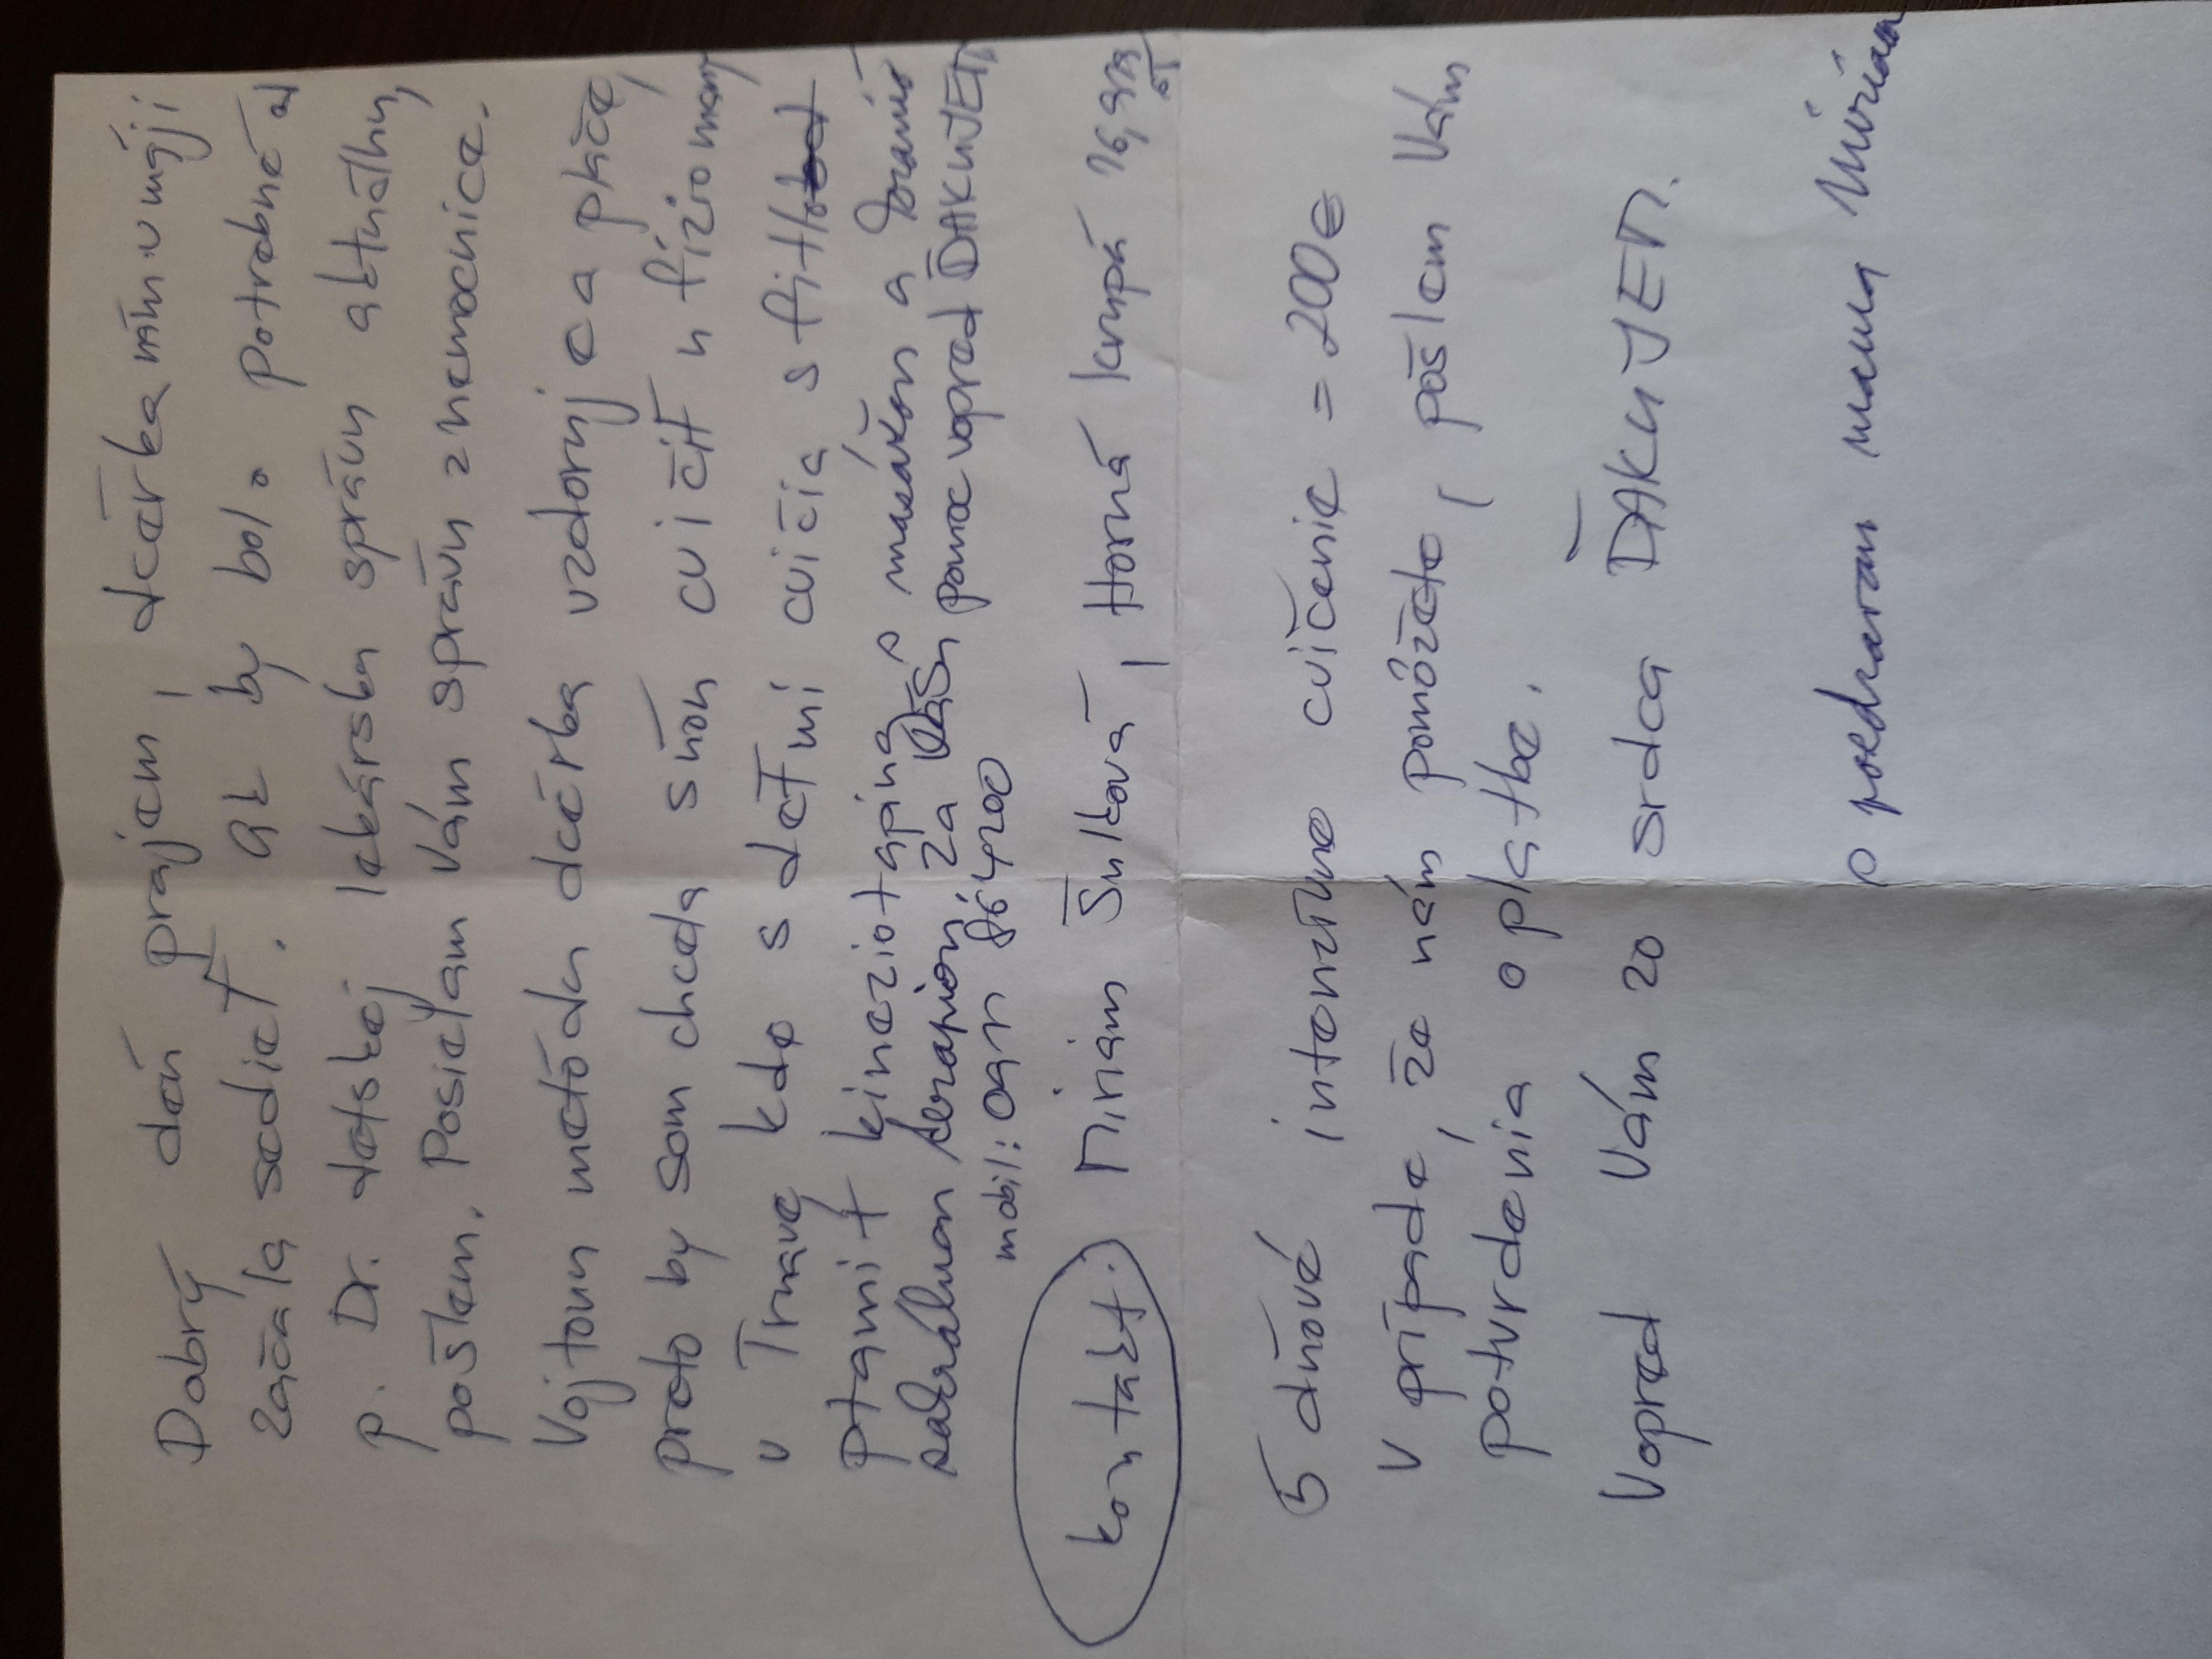 Dobrý deň prajem, dcérka mám v máji
začala sedieť. ak by bolo potrebné aj
p. Dr. detskej lekársku správu aktuálnu,
pošlem. Posielam Vám správu z nemocnice.
Vojtovu metódu dcérka vzdoruje a pláče,
preto by som chcela s ňou cvičiť u fízio mamy
v Trnave kde s deťmi cvičia s fit
ptami + kineziotaping s masážou a
terapiou, za Vašu pomoc vopred ĎAKUJEM,
mobil:
kontakt: Miriam Šulková, Horná Krupá
5 dňové intenzívne cvičenie = 200€
V prípade, že nám pomôžete, pošlem Vám
potvrdenia o platbe.
Vopred Vám zo srdca ĎAKUJEM.
S pozdravom mama Miriam